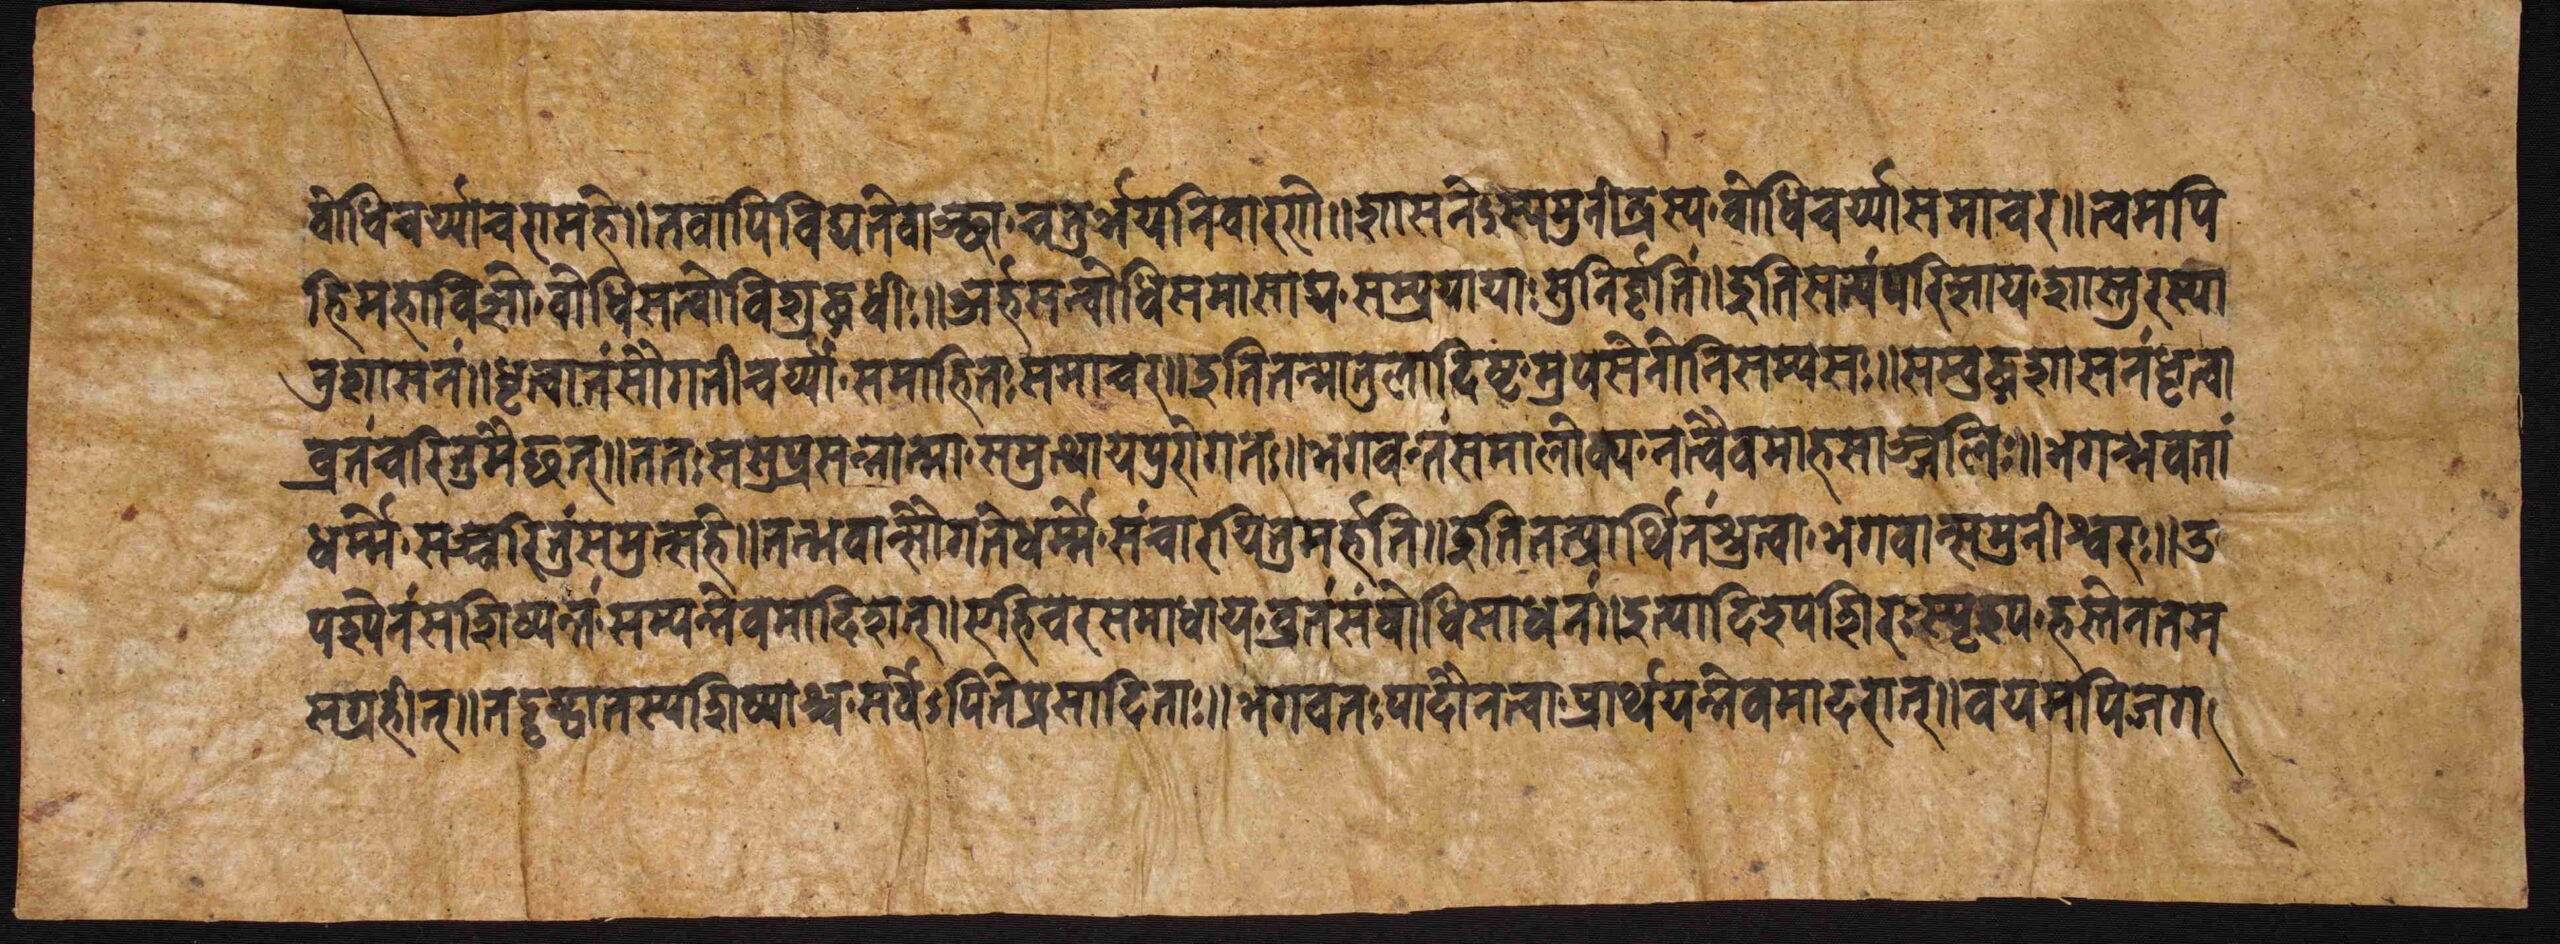 बोधिचर्य्यांचरामहे॥तवापिविद्यतेवाञ्छा,चतुर्भयनिवारणी॥शासनेऽस्यमुनीन्द्रस्य,बोधिचर्य्यांसमाचर॥त्वमपि
हिमहाविज्ञो,बोधिसत्वोविशुद्धधीः॥अर्हसन्बोधिसमासाद्य,सम्प्रयायाःसुनिर्वृतिं॥इतिसत्यंपरिज्ञाय,शास्तुरस्या
नुशासनं॥धृत्वातंसौगतीचर्य्यां,समाहितःसमाचर॥इतितन्मातुलादिष्टं,सम्बुद्धशासनंधृत्वा
व्रतंचरितुमैच्छत्॥ततःससुप्रसन्नात्मा,समुत्थायपुरोगतः॥भगवन्तंसमालोक्य,नत्वैवमाहसाञ्जलिः॥भगन्भवतां
धर्म्मे,सञ्चरितुंसमुत्सहे॥तन्भवान्सौगतेधर्म्मे,संचारयितुमर्हति॥इतितत्प्रार्थितंश्रुत्वा,भगवान्समुनीश्वरः॥त
पश्येतंसशिष्यन्तं,सम्पन्नेवमादिशत्॥एहिचरसमाधाय,व्रतंसंबोधिसाधनं॥इत्यादिश्यशिरःस्पृश्य,हस्तेनतम
सग्रहीत्॥तदृष्ट्वातस्यशिष्याश्च,सर्वेऽपितेप्रसादिताः॥भगवतःपादौनत्वा,प्रार्थयन्नेवमादरात्॥वयमपिजग